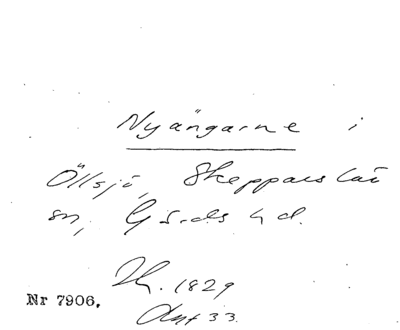 Nyängarne i
Öllsjö, Skepparslöv
sn, Gärds hd.
1829
Nr 7906.
33